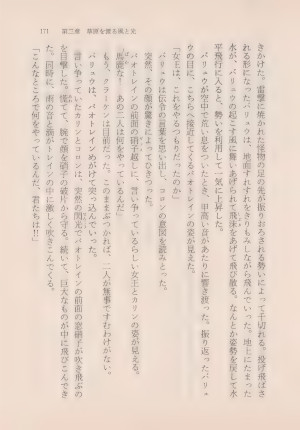 171　第三章　草原を渡る風と光
きかけた。雷撃に焼かれた怪物の足の先が振りおろされる勢いによって千切れる。投げ飛ばさ
れる形になったバリュウは、地面すれすれをきりもみしながら飛んでいった。地上にたまった
水が、バリュウの起こす風に舞いあげられて飛沫をあげて飛び散る。なんとか姿勢を戻して水
平飛行に入ると、勢いを利用して一気に上昇した。
バリュウが空中で荒い息をついたとき、甲高い音があたりに響き渡った。振り返ったバリュ
ウの目に、こちらへ接近してくるパオトレインの姿が見えた。
「女王は、これをやるつもりだったのか」
バリュウは伝令の言葉を思い出し、コロンの意図を読みとった。
突然、その顔が驚きによってひきつった。
パオトレインの前面の硝子越しに、言い争っているらしい女王とカリンの姿が見える。
「馬鹿な！　あの二人は何をやっているんだ」
もう、クラーケンは目前だった。このままぶつかれば、二人が無事ですむわけがない。
バリュウは、パオトレインめがけて突っ込んでいった。
言い争っていたカリンとコロンは、突然の閃光でパオトレインの前面の窓硝子が吹き飛ぶの
を目撃した。慌てて、腕で顔を硝子の破片から守る。続いて、巨大なものが中に飛びこんでき
た。同時に、雨の音と風がトレインの中に激しく吹きこんでくる。
「こんなところで何をやっているんだ、君たちは!!」